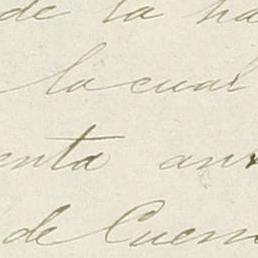 de la ha
la cual
enta an
de Cuen